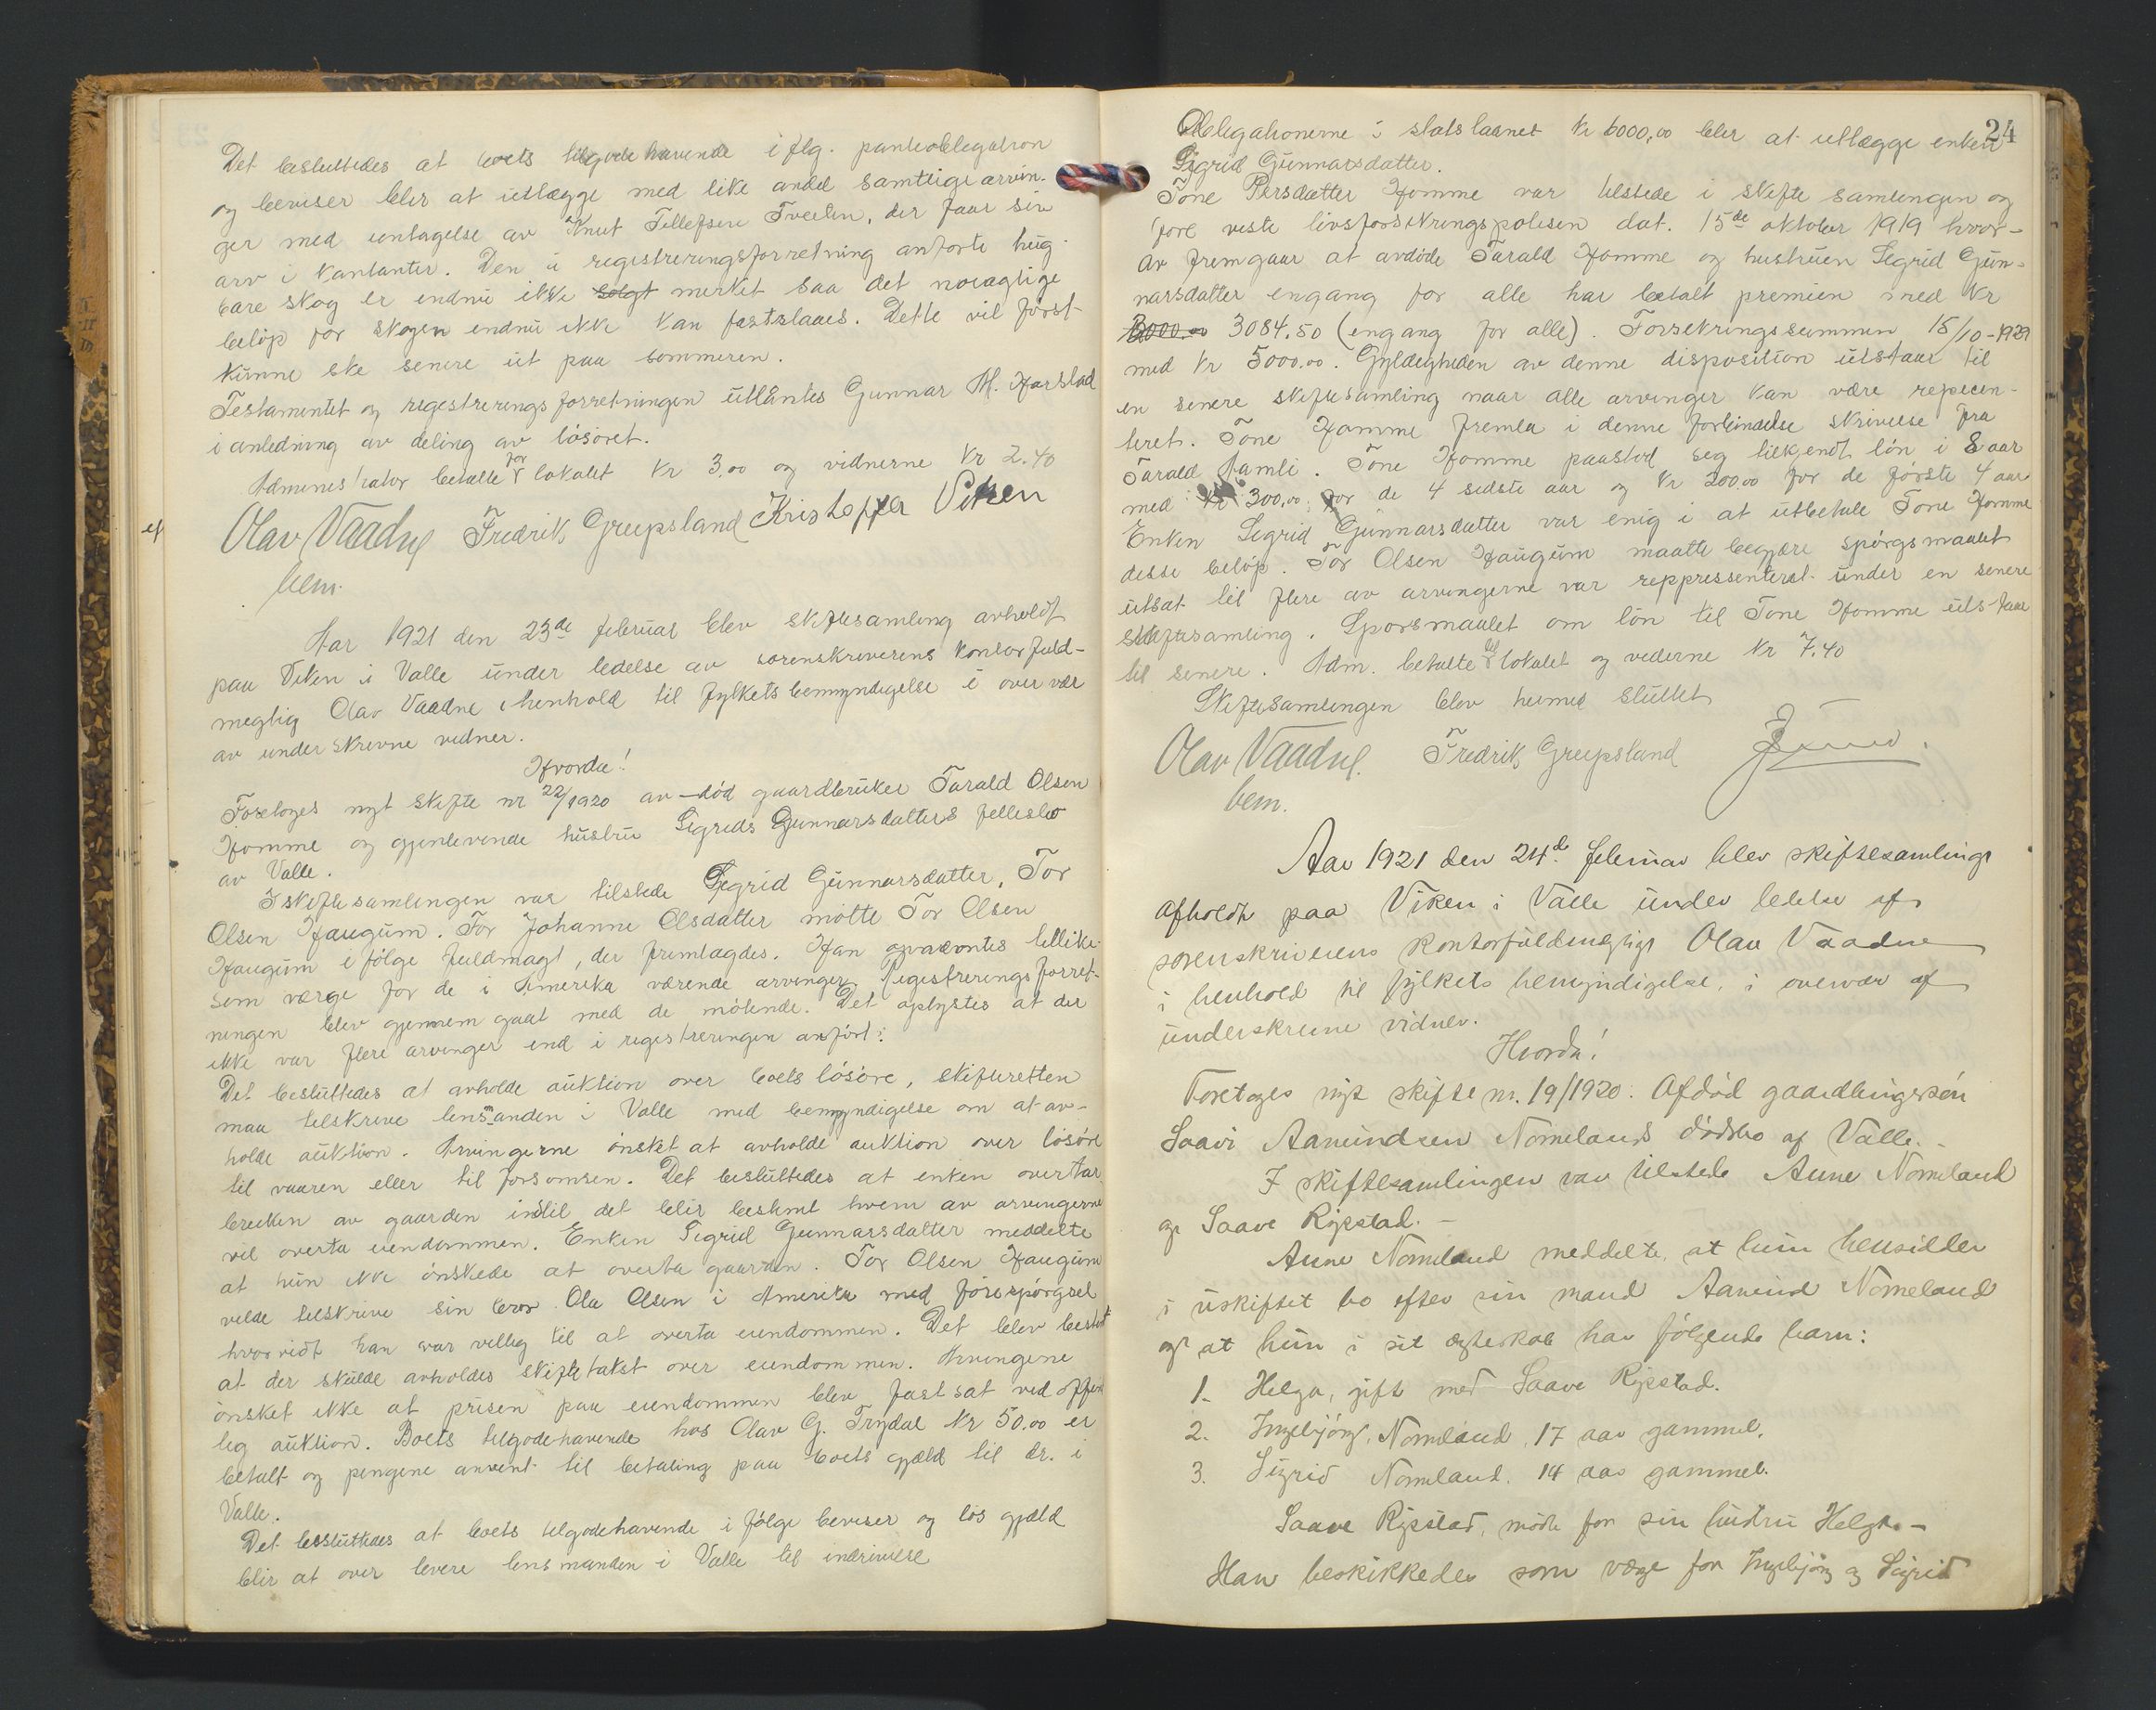 Det besluttedes at boets tilgodehavende iflg. panteobligation
og beviser blir at utlægge med like andel samtlige arvin-
ger med untagelse av Knut Tellefsen Tveiten, der faar sin
arv i kontanter. Den i registreringsforretning anførte hug-
bare skog er endnu ikke solgt merket saa det nøiagtige
beløp for skogen endnu ikke kan fastslaaes. Dette vil først
kunne ske senere ut paa sommeren.
Testamentet og registreringsforretningen utlåntes Gunnar M. Harstad
i anledning av deling av løsøret.
Administrator betalte for lokalet kr 3.00 og vidnerne kr 2.40
Olav Vaadne Fredrik Greipsland Kristoffer Viken
bem.
Aar 1921 den 23de februar blev skiftesamling avholdt
paa Viken i Valle under ledelse av sorenskriverens kontorfuld-
megtig Olav Vaadne i henhold til fylkets bemyndigelse i overvær
av underskrevne vidner.
Hvorda!
Foretoges nyt skifte nr 22/1920 av død gaardbruker Tarald Olsen
Homme og gjenlevende hustru Sigrids Gunnarsdatters fellesbo
av Valle.
I skiftesamlingen var tilstede Sigrid Gunnarsdatter, Tor
Olsen Haugum. For Johanne Olsdatter møtte Tor Olsen
Haugum i følge fuldmagt, der fremlagdes. Han opnævntes tillike
som værge for de i Amerika værende arvinger. Registreringsforret-
ningen blev gjennemgaat med de møtende. Det oplystes at der
ikke var flere arvinger end i registreringen anført.
Det besluttedes at avholde auktion over boets løsøre, skifteretten
maa tilskrive lensmanden i Valle med bemyndigelse om at av-
holde auktion. Arvingerne ønsket at avholde auktion over løsøre
til vaaren eller til forsomren. Det besluttedes at enken overtar
bruken av gaarden indtil det blir bestemt hvem av arvingerne
vil overta eiendommen. Enken Sigrid Gunnarsdatter meddelte
at hun ikke ønskede at overta gaarden. Tor Olsen Haugum
vilde tilskrive sin bror Ola Olsen i Amerika med forespørgsel
hvorvidt han var villig til at overta eiendommen. Det blev bestemt
at der skulde avholdes skiftetakst over eiendommen. Arvingerne
ønsket ikke at prisen paa eiendommen blev fastsat ved offent
lig auktion. Boets tilgodehavende hos Olav G. Trydal kr 50.00 er
betalt og pengene anvent til betaling paa boets gjæld til dr. i
Valle.
Det besluttedes at boets tilgodehavende i følge beviser og løs gjæld
blir at over levere lensmanden i Valle til indrivelse
24
Obligationerne i statslaanet kr 6000,00 blir at utlægge enken
Sigrid Gunnarsdatter.
Tone Persdatter Homme var tilstede i skiftesamlingen og
fore viste livsforsikringspolisen dat. 15de oktober 1919 hvor-
av fremgaar at avdøde Tarald Homme og hustruen Sigrid Gun-
narsdatter engang for alle har betalt premien med kr
3000.00 3084.50 (engang for alle). Forsikringssummen 15/10-1929
med kr 5000.00. Gyldigheden av denne disposition utstaar til
en senere skiftesamling naar alle arvinger kan være repræsen-
teret. Tone Homme fremla i denne forbindelse skrivelse fra
Tarald Jamli. Tone Homme paastod seg tilkjendt løn i 8 aar
med kr 300,00 for de 4 sidste aar og kr 200.00 for de første 4 aar
Enken Sigrid Gunnarsdatter var enig i at utbetale Tone Homme
disse beløp. Tor Olsen Haugum maatte begjære spørgsmaalet
utsat til flere av arvingerne var reppressenterat under en senere
skiftesamling. Sporsmaalet om løn til Tone Homme utstaar
til senere. Adm. betalte til lokalet og viderne kr 7.40
Skiftesamlingen blev hermed sluttet
Olav Vaadne. Fredrik Greipsland
bem.
Aar 1921 den 24d. februar blev skiftesamlings
afholdt paa Viken i Valle under ledelse af
sorenskriverens kontorfuldmegtig Olav Vaadne
i henhold til fylkets bemyndigelse, i overvær af
underskrevne vidner.
Hvorda!
Foretoges nyt skifte nr. 19/1920. Afdød gaardbrugersøn
Saavi Aamundsen Nomelands dødsbo af Valle. -
I skiftesamlingen var tilstede Anne Nomeland
og Saave Rigstad. -
Anne Nomeland meddelte, at hun hensidder
i uskiftet bo efter sin mand Aamund Nomeland
og at hun i sit ægteskab har følgende barn:
1. Helga, gift med Saave Rigstad.
2. Ingebjørg Nomeland, 17 aar gammel.
3. Sigrid Nomeland, 14 aar gammel.
Saave Rigstad, møtte for sin hustru Helga. -
Han beskikkedes som verge for Ingebjørg og Sigrid